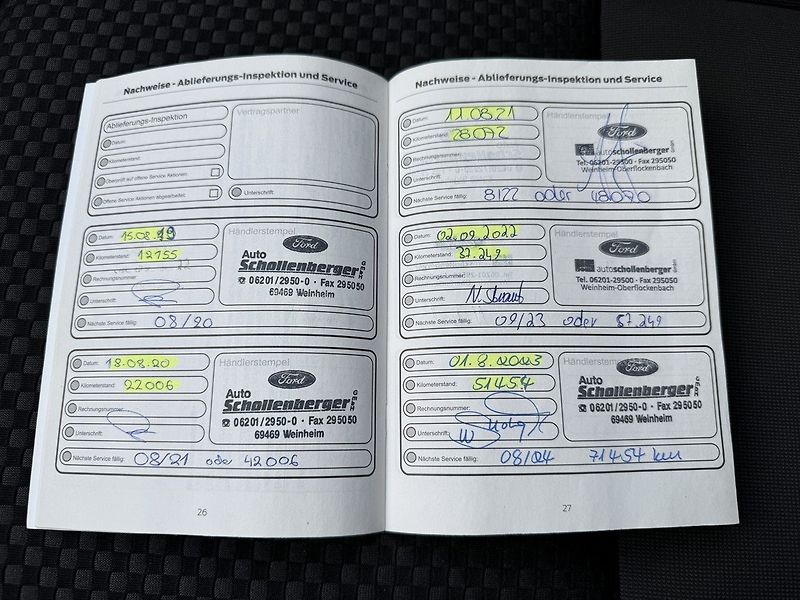 Nachweise - Ablieferungs-Inspektion und Service
Ablieferungs-Inspektion
Vertragspartner
Datum:
Kilometerstand:
Überprüft auf offene Service Aktionen:
Offene Service Aktionen abgearbeitet:
Unterschrift:
Datum: 15.08.19
Kilometerstand: 12155
Rechnungsnummer:
Unterschrift:
Händlerstempel
Ford
Auto
Schollenberger GMBH
☎ 06201/2950-0 · Fax 295050
69469 Weinheim
Nächste Service fällig: 08/20
Datum: 18.08.20
Kilometerstand: 22006
Rechnungsnummer:
Unterschrift:
Händlerstempel
Ford
Auto
Schollenberger GMBH
☎ 06201/2950-0 · Fax 295050
69469 Weinheim
Nächste Service fällig: 08/21 oder 42006
26
Nachweise - Ablieferungs-Inspektion und Service
Datum: 11.08.21
Kilometerstand: 28092
Rechnungsnummer:
Unterschrift:
Händlerstempel
Ford
autoschollenberger GmbH
Tel. 06201-29500 · Fax 295050
Weinheim-Oberflockenbach
Nächste Service fällig: 8122 oder 48090
Datum: 02.09.2022
Kilometerstand: 37.249
Rechnungsnummer:
Unterschrift:
Händlerstempel
Ford
autoschollenberger GmbH
Tel. 06201-29500 · Fax 295050
Weinheim-Oberflockenbach
Nächste Service fällig: 09/23 oder 57.249
Datum: 01.8.2023
Kilometerstand: 51454
Rechnungsnummer:
Unterschrift:
Händlerstempel
Ford
Auto
Schollenberger GMBH
☎ 06201/2950-0 · Fax 295050
69469 Weinheim
Nächste Service fällig: 08/24 71454 km
27